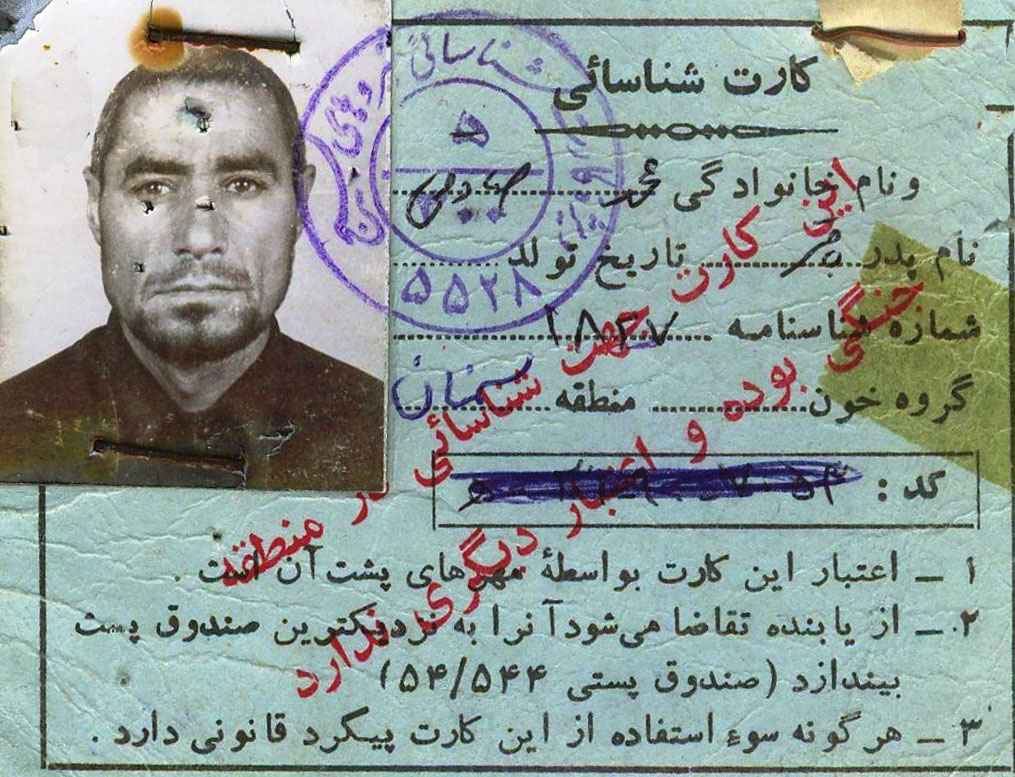 کارت شناسائی
و نام خانوادگی محمد
نام پدر تاریخ تولد
شماره شناسنامه ۱۸۲۷
گروه خون منطقه سمنان
کد :
۱ ـ اعتبار این کارت بواسطهٔ مهرهای پشت آن است .
۲ ـ از یابنده تقاضا می‌شود آنرا به نزدیکترین صندوق پست
بیندازد (صندوق پستی ۵۴/۵۴۴)
۳ ـ هرگونه سوء استفاده از این کارت پیگرد قانونی دارد .
این کارت جهت شناسائی در منطقه
جنگی بوده و اعتبار دیگری ندارد
شناسائی نیروهای
۵
۵۵۲۸